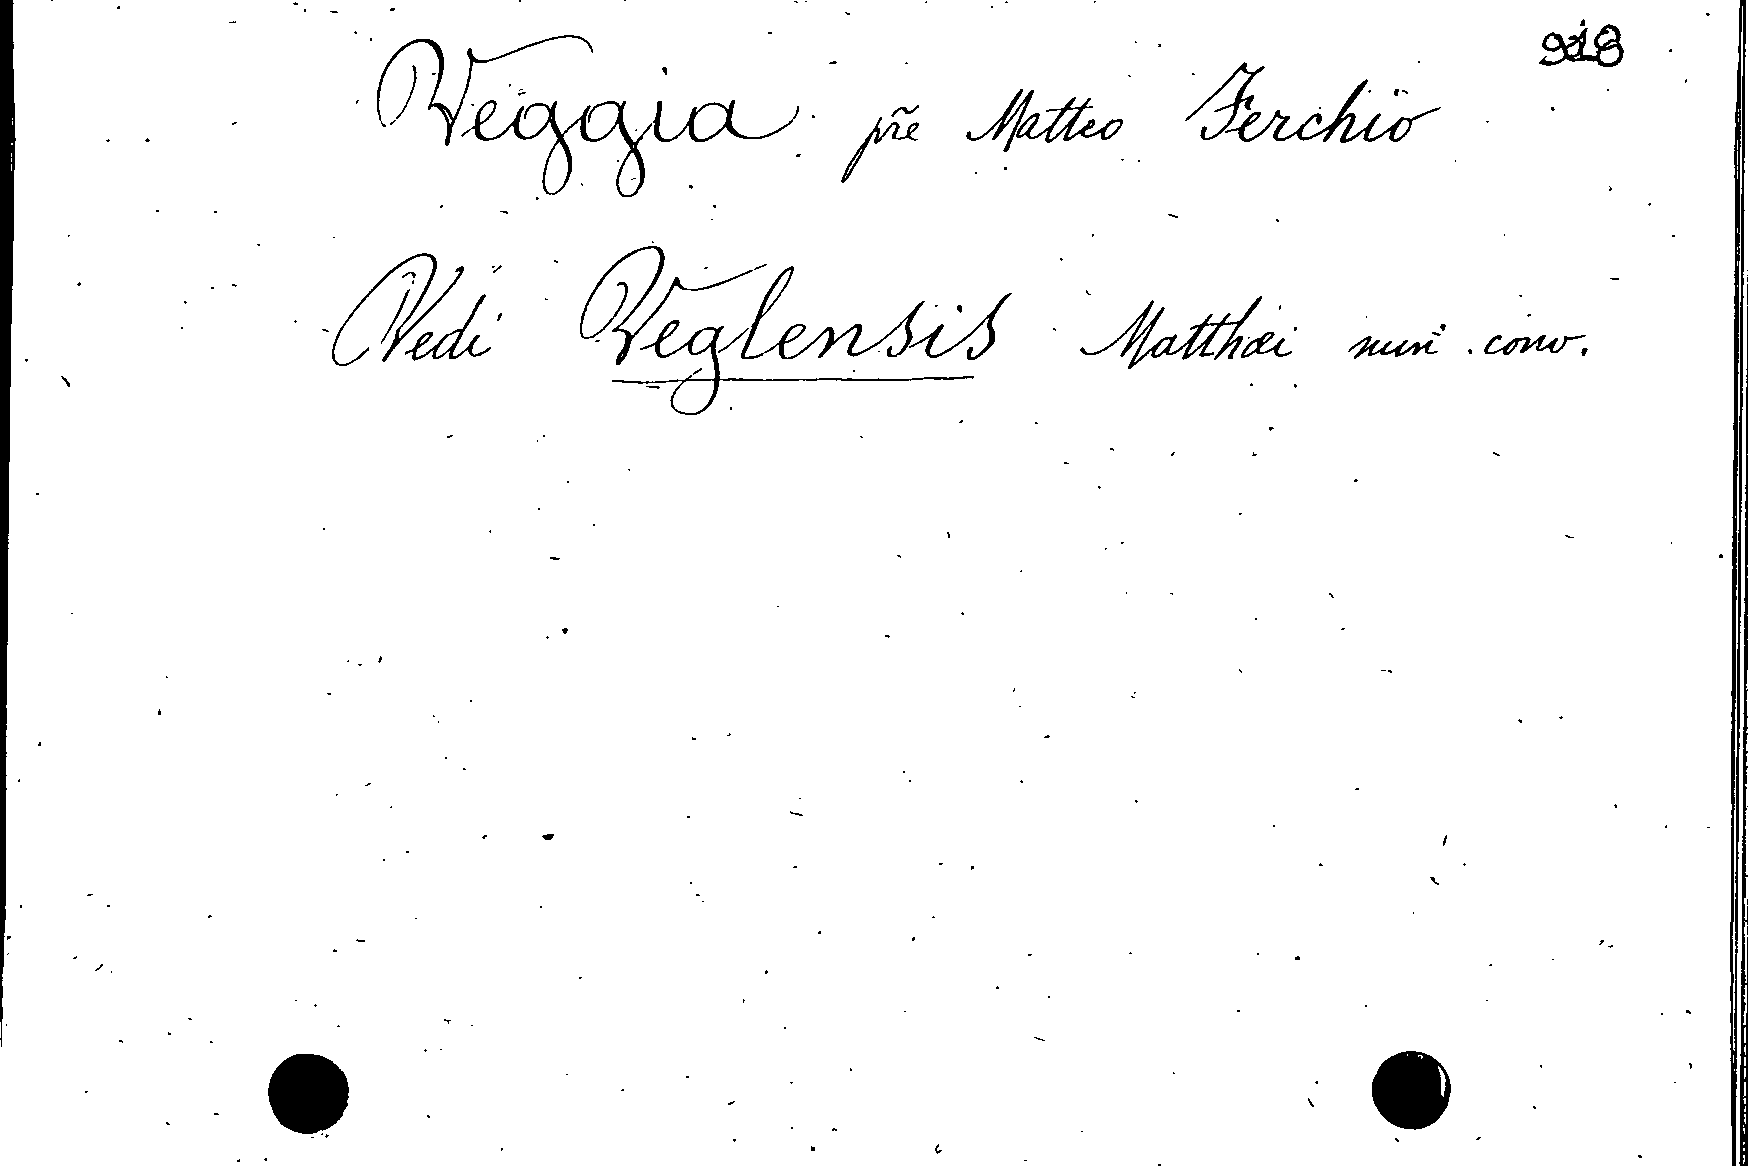 918
Veggia pr̃e Matteo Ferchio
Vedi Veglensis Matthæi min̄ conv.